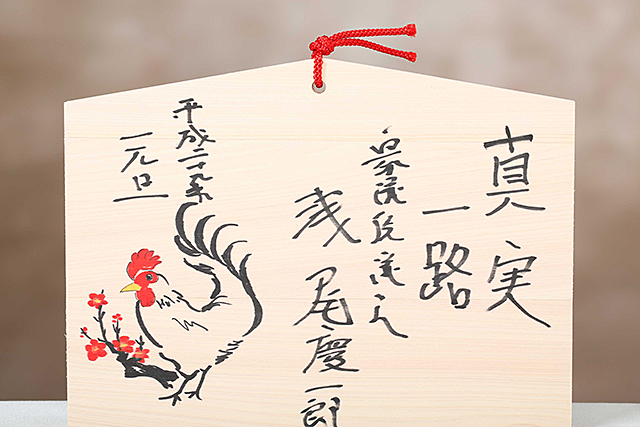 真実
一路
衆議院議員
浅尾慶一郎
平成二十九年
一元旦